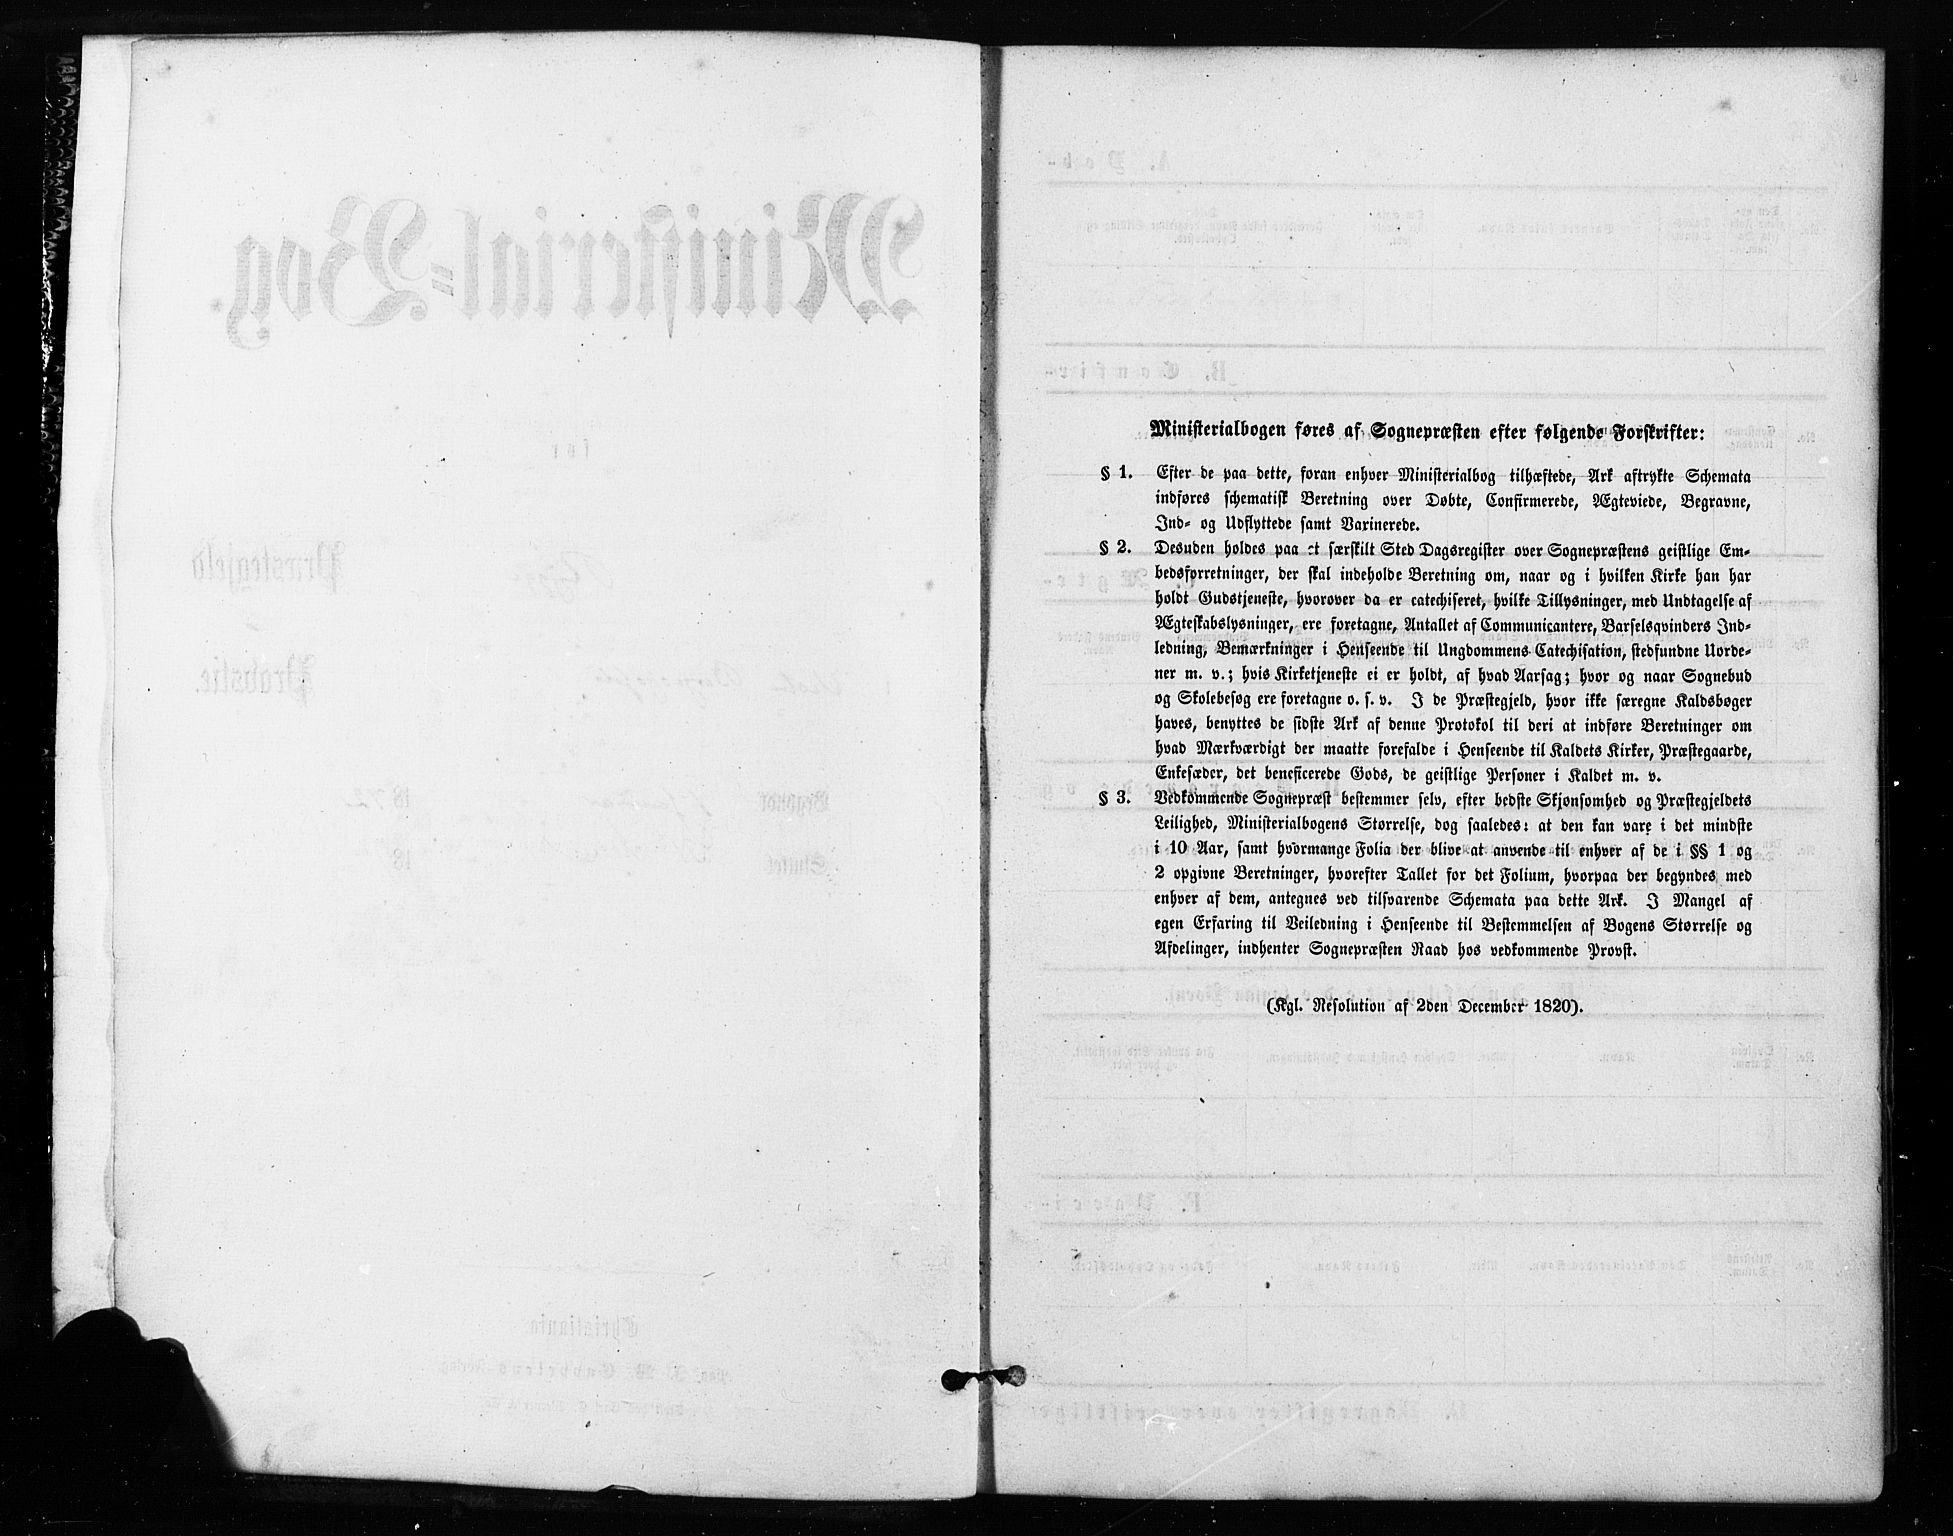 Ministerialbogen føres af Sognepræsten efter følgende Forskrifter:
§ 1. Efter de paa dette, foran enhver Ministerialbog tilhæftede, Ark aftrykte Schemata
indføres schematisk Beretning over Døbte, Confirmerede, Ægteviede, Begravne,
Ind- og Udflyttede samt Vaxinerede.
§ 2. Desuden holdes paa et særskilt Sted Dagsregister over Sognepræstens geistlige Em-
bedsforretninger, der skal indeholde Beretning om, naar og i hvilken Kirke han har
holdt Gudstjeneste, hvorover da er catechiseret, hvilke Tillysninger, med Undtagelse af
Ægteskabslysninger, ere foretagne, Antallet af Communicantere, Barselqvinders Ind-
ledning, Bemærkninger i Henseende til Ungdommens Catechisation, stedfundne Uorde-
ner m. v.; hvis Kirketjeneste ei er holdt, af hvad Aarsag; hvor og naar Sognebud
og Skolebesøg ere foretagne o. s. v. I de Præstegjeld, hvor ikke særegne Kaldsbøger
haves, benyttes de sidste Ark af denne Protokol til deri at indføre Beretninger om
hvad Mærkværdigt der maatte forefalde i Henseende til Kaldets Kirker, Præstegaarde,
Enkesæder, det beneficerede Gods, de geistlige Personer i Kaldet m. v.
§ 3. Vedkommende Sognepræst bestemmer selv, efter bedste Skjønsomhed og Præstegjeldets
Leilighed, Ministerialbogens Størrelse, dog saaledes: at den kan vare i det mindste
i 10 Aar, samt hvormange Folia der blive at anvende til enhver af de i §§ 1 og
2 opgivne Beretninger, hvorefter Tallet for det Folium, hvorpaa der begyndes med
enhver af dem, antegnes ved tilsvarende Schemata paa dette Ark. I Mangel af
egen Erfaring til Veiledning i Henseende til Bestemmelsen af Bogens Størrelse og
Afdelinger, indhenter Sognepræsten Raad hos vedkommende Provst.
(Kgl. Resolution af 2den December 1820).